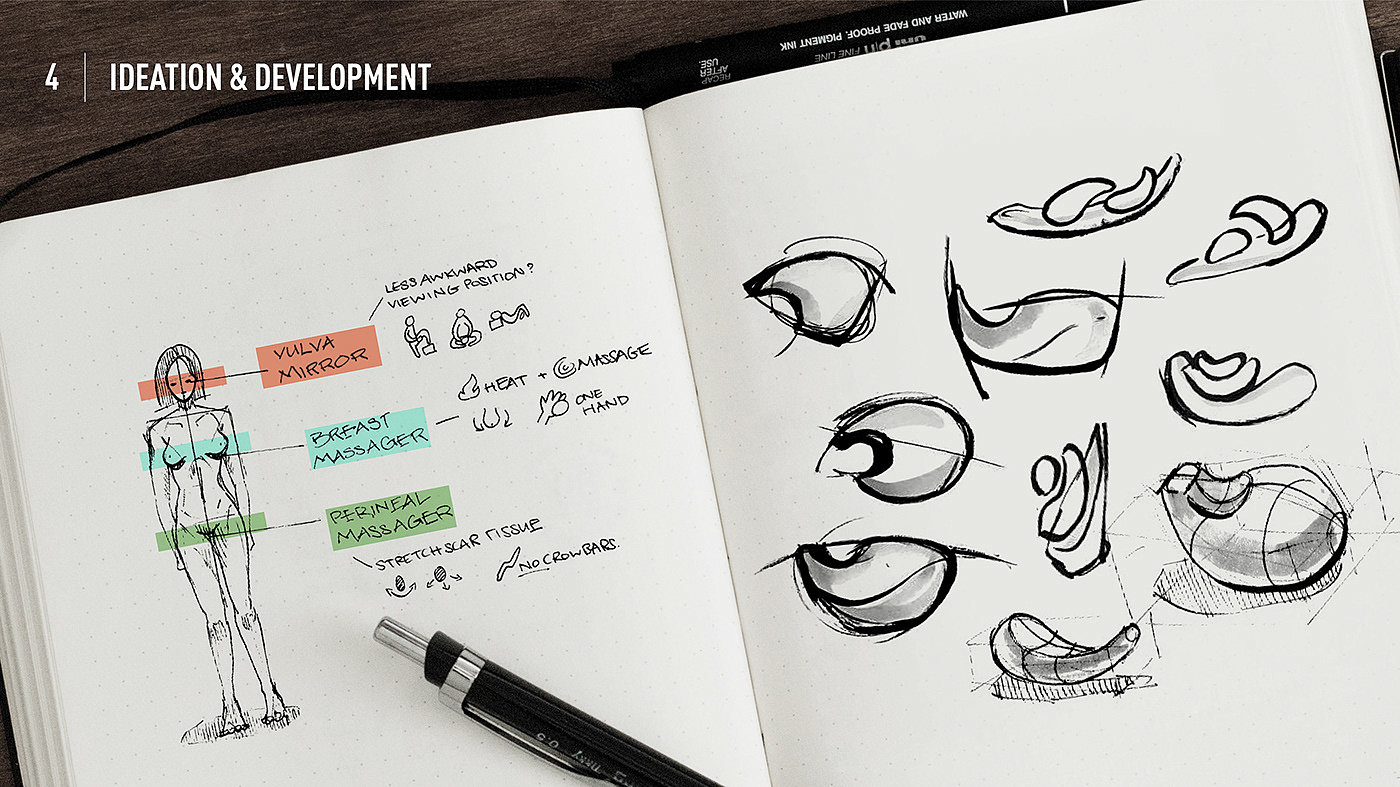 4
IDEATION & DEVELOPMENT
WATER AND FADE PROOF, PIGMENT INK
uni pin FINE LINE
RECAP
AFTER
USE.
LESS AWKWARD
VIEWING POSITION?
VULVA
MIRROR
HEAT + MASSAGE
ONE
HAND
BREAST
MASSAGER
PERINEAL
MASSAGER
STRETCH SCAR TISSUE
NO CROWBARS.
0.5